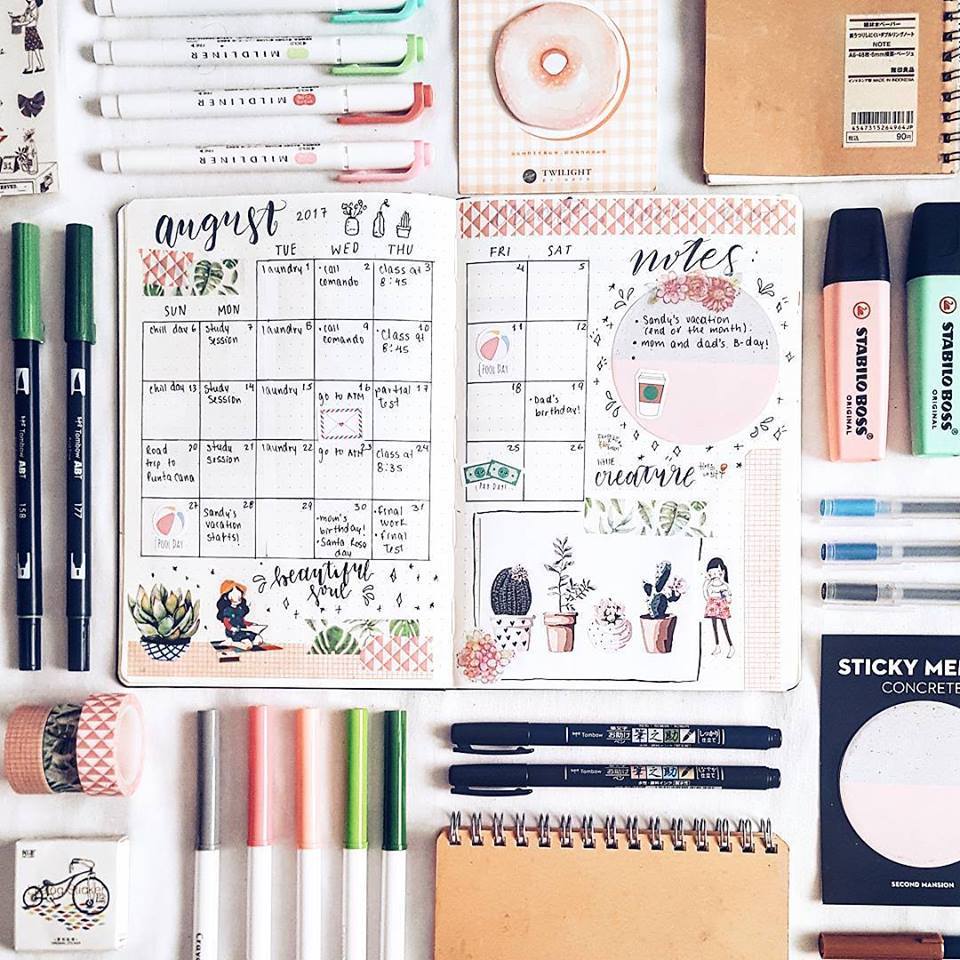 MILDLINER
MILDLINER
MILDLINER
TWILIGHT
NOTE
MADE IN INDONESIA
4547315264964JP
税込 90円
無印良品
august 2017
TUE WED THU
laundry 1
•call 2
comando
class at 3
8:45
SUN MON
chill day 6
study 7
session
laundry 8
•call 9
comando
•Class at 10
8:45
chill day 13
study 14
session
laundry 15
16
go to ATM
partial 17
test
Road 20
trip to
Punta Cana
study 21
session
laundry 22
go to ATM 23
class at 24
8:35
27
POOL DAY
Sandy's 28
vacation
starts!
29
30
•mom's
birthday!
•Santa Rosa
day
•final 31
work
•final
test
beautiful
soul
FRI SAT
4 5
11 12
POOL DAY
18 19
•Dad's
birthday!
25 26
PAY DAY
notes:
• Sandy's vacation
(end of the month).
• mom and dad's B-day!
•
creature
Tombow ABT
158
Tombow ABT
177
STABILO BOSS
ORIGINAL
STABILO BOSS
ORIGINAL
Tombow 筆之助 しっかり仕立て
Tombow 筆之助
STICKY ME
CONCRETE
SECOND MANSION
Cray